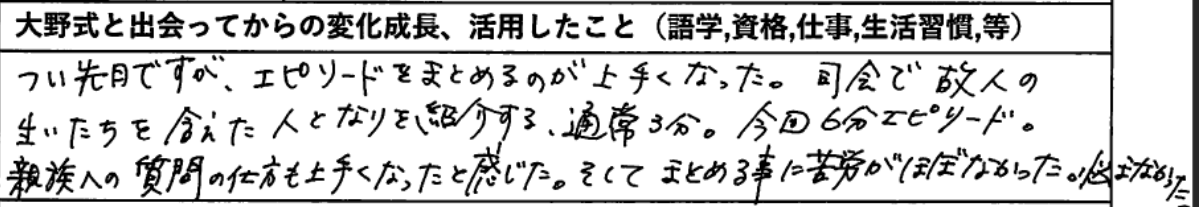 大野式と出会ってからの変化成長、活用したこと（語学,資格,仕事,生活習慣,等）
つい先日ですが、エピソードをまとめるのが上手くなった。司会で故人の
生いたちを含えた人となりを紹介する、通常3分。今回6分エピソード。
親族への質問の仕方も上手くなったと感じた。そしてまとめる事に苦労がほぼなかった。悩まなかった